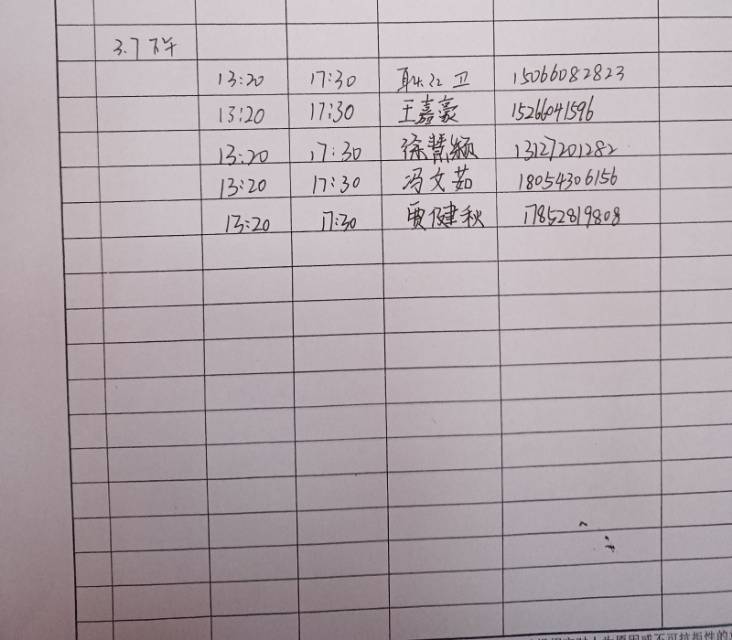 3.7 下午
13:20 17:30 卫 15066082823
13:20 17:30 王嘉豪 15266041596
13:20 17:30 徐慧颖 13127201282
13:20 17:30 冯文茹 18054306156
13:20 17:30 贾健秋 17852819808
不可抗拒性的